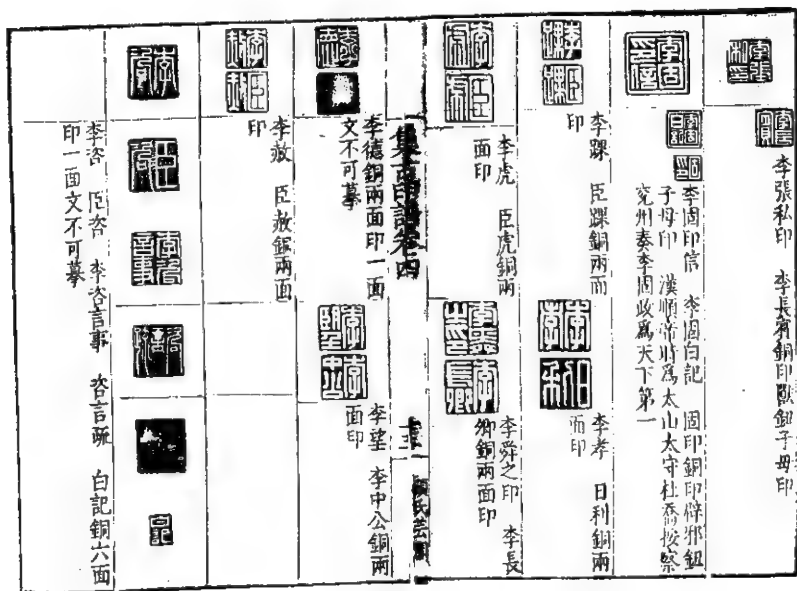 李張私印　李長賓銅印獸鈕子母印
李固印信　李固白記　固印銅印辟邪鈕
子母印　漢順帝時爲太山太守杜喬按察
兗州奏李固政爲天下第一
李踝　臣踝銅兩面
印
李孝　日利銅兩
面印
李虎　臣虎銅兩
面印
李舜之印　李長
卿銅兩面印
集古印譜卷四
顧氏芸閣
李德銅兩面印一面
文不可摹
李望　李中公銅兩
面印
李赦　臣赦銀兩面
印
李咨　臣咨　李咨言事　咨言疏　白記銅六面
印一面文不可摹